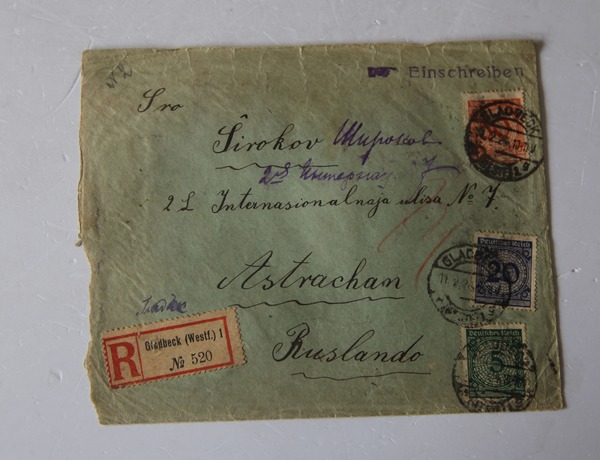 № 2
Einschreiben
Sro
Ŝirokov Широков
2я
2 L Internasionalnaja ulisa № 7.
Astrachan
Ruslando
R Gladbeck (Westf.) 1
№ 520
GLADBECK
GLADBECK
Deutsches Reich
20
Deutsches Reich
5